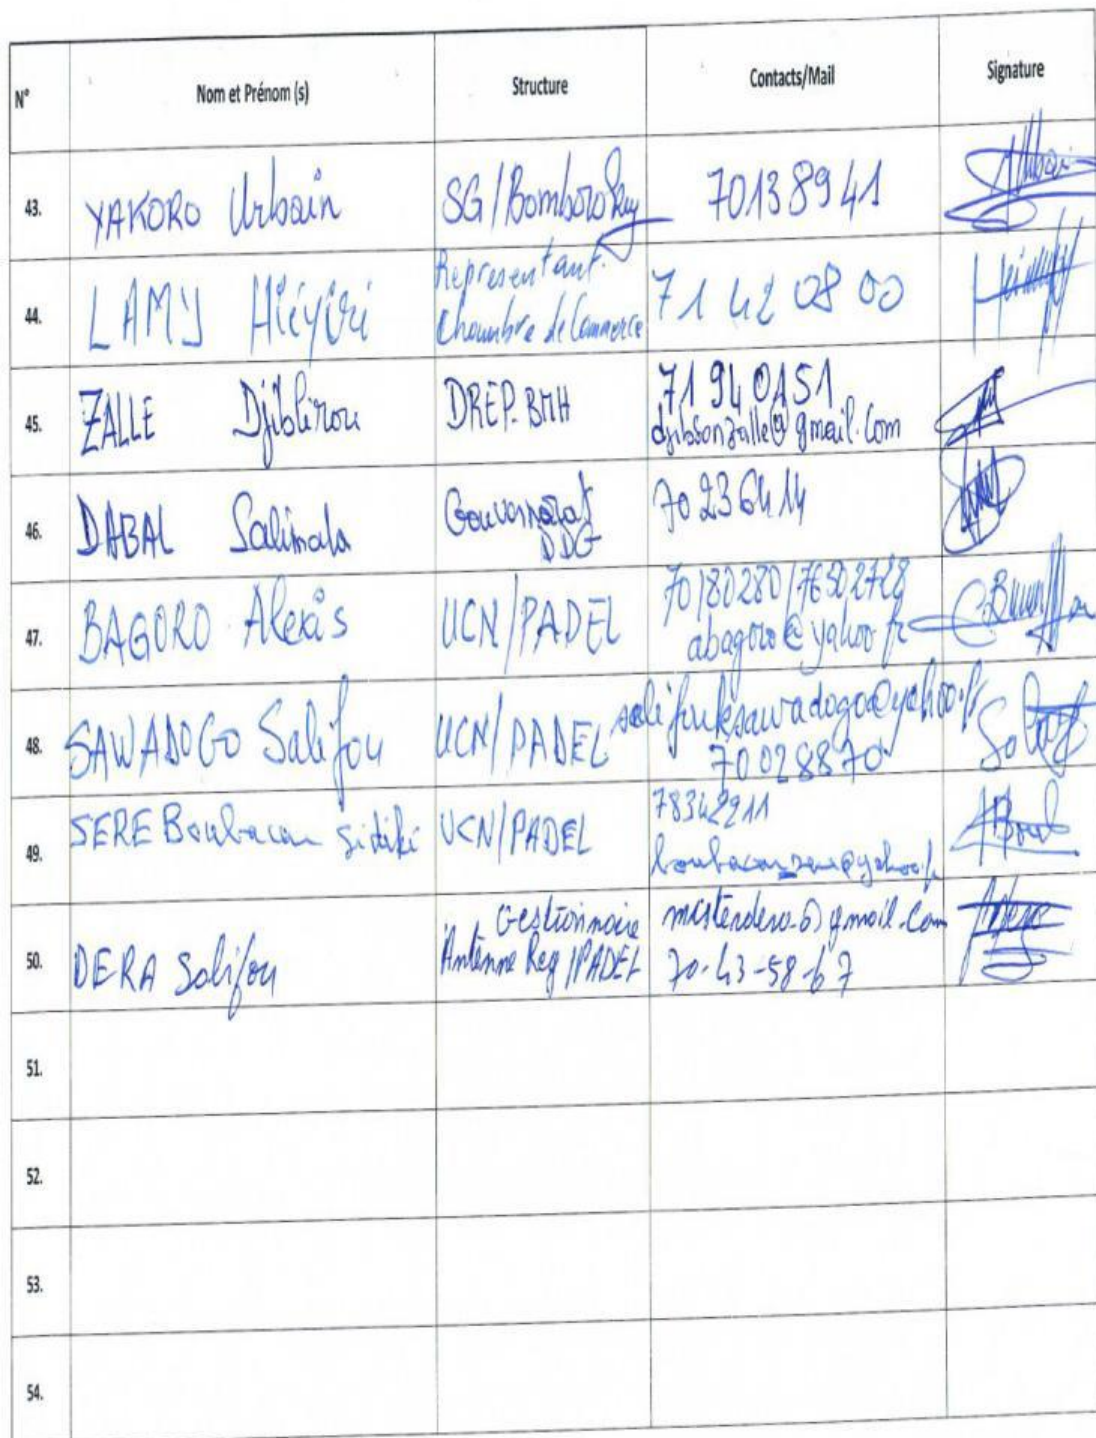 N° Nom et Prénom (s) Structure Contacts/Mail Signature
43. YAKORO Urbain SG/Bomborokuy 70138941
44. LAMY Hiéyiri Représentant Chambre de Commerce 71 42 08 00
45. ZALLE Djiblirou DREP.BMH 71940151
djibsonzalle@gmail.com
46. DABAL Salimata Gouvernorat 70 23 64 14
DDG
47. BAGORO Alexis UCN/PADEL 70180280/76502728
abagoro@yahoo.fr
48. SAWADOGO Salifou UCN/PADEL salifouksawadogo@yahoo.fr
70028870
49. SERE Boubacar Sidiki UCN/PADEL 78342911
50. DERA Salifou Gestionnaire
Antenne Reg/PADEL 70-43-58-67
51.
52.
53.
54.